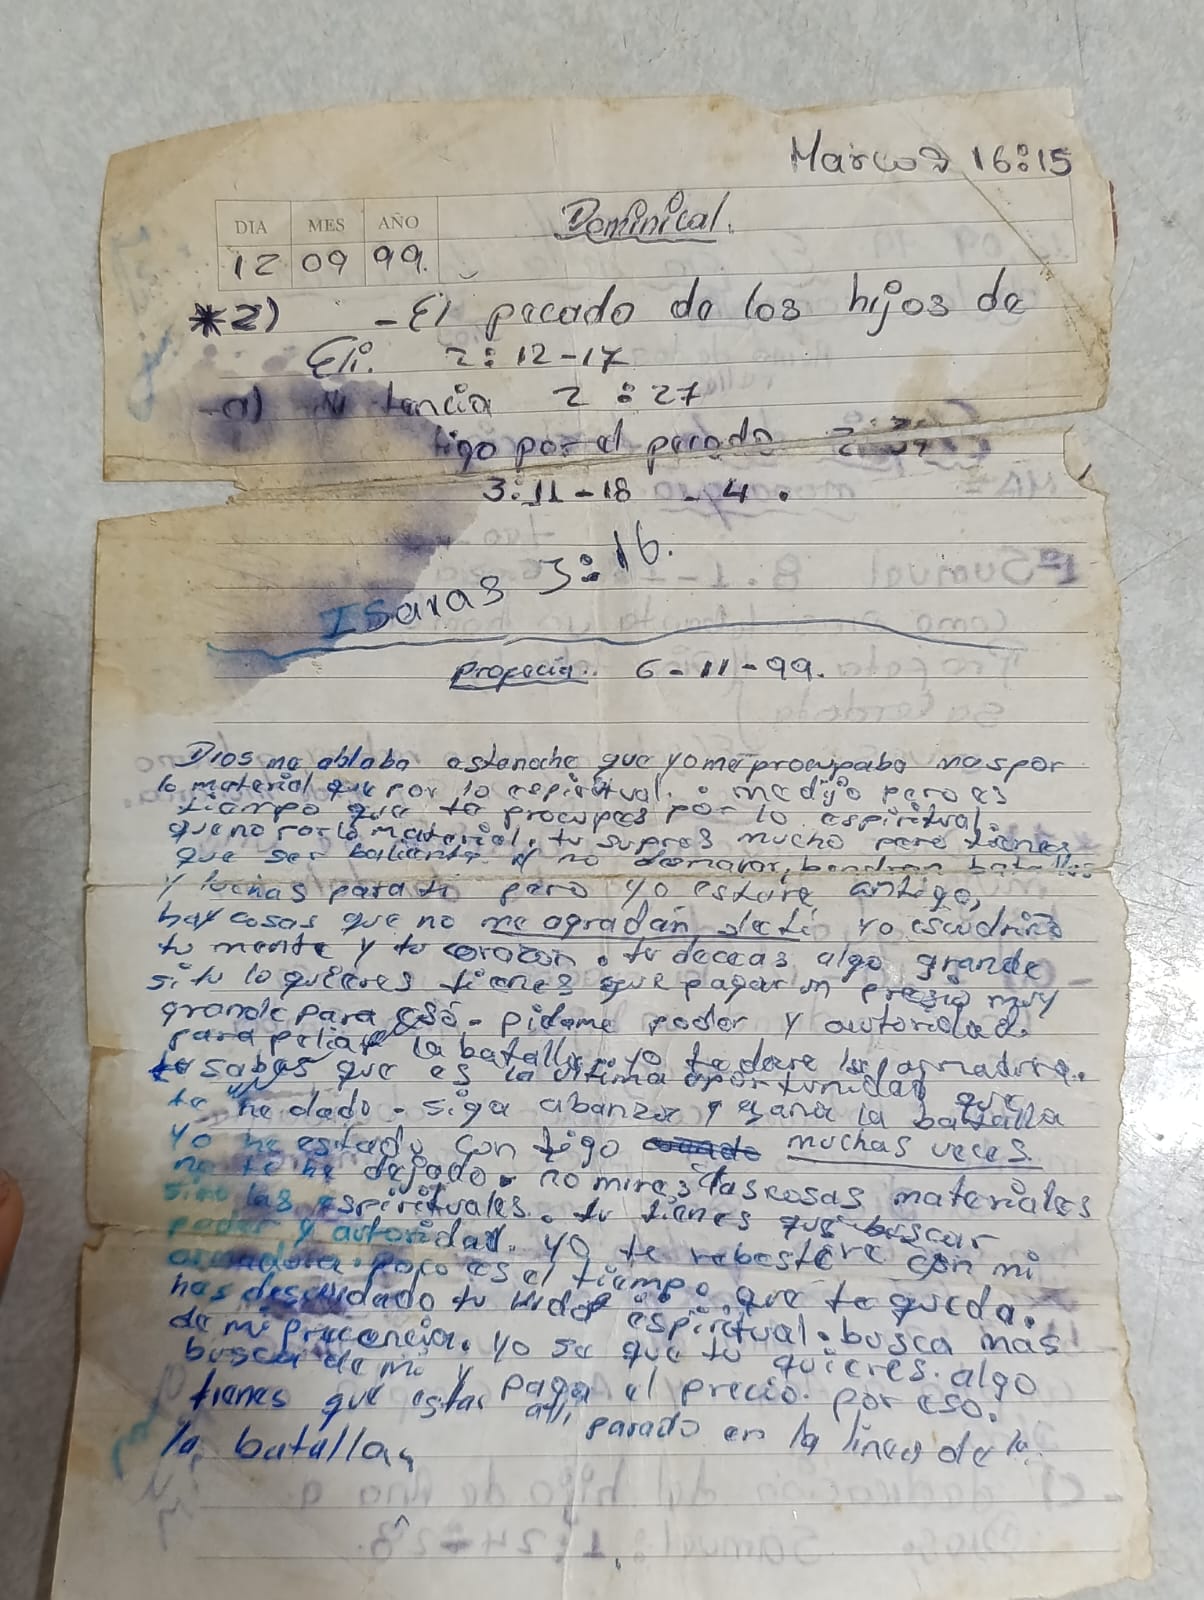 Marcos 16:15
DIA MES AÑO Dominical.
12 09 99.
*2) - El pecado de los hijos de
Eli. 2:12-17
a) tancia 2:27
tigo por el pecado
3:11-18 - 4.
Isaias 3:16.
Profecia.. 6-11-99.
Dios me ablaba estanoche que yo me procupaba mas por
lo material que por lo espiritual. me dijo pero es
tiempo que te procupes por lo espiritual.
que no por lo material. tu supres mucho pero tienes
que ser baliente y no demayar, bendran batallas
y luchas para ti pero yo estare contigo,
hay cosas que no me agradan de ti yo escudriño
tu mente y tu corazon. tu deceas algo grande
si tu lo quieres tienes que pagar un presio muy
grande para eso. pideme poder y autoridad.
para peliar la batalla. yo te dare la armadura.
tu sabes que es la ultima oportunidad que
te he dado. siga abanza y gana la batalla
yo he estado con tigo muchas veces.
no te he dejado. no mires las cosas materiales
sino las espirituales. tu tienes que buscar
poder y autoridad. yo te rebestire con mi
armadura. poco es el tiempo que te queda.
has descuidado tu vida espiritual. busca mas
de mi precencia. yo se que tu quieres algo
busca de mi y paga el precio. por eso.
tienes que estar alli parado en la linea de la
la batalla,